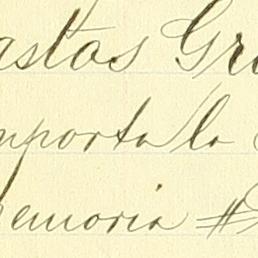 astos Gr
mporta la
emoria #